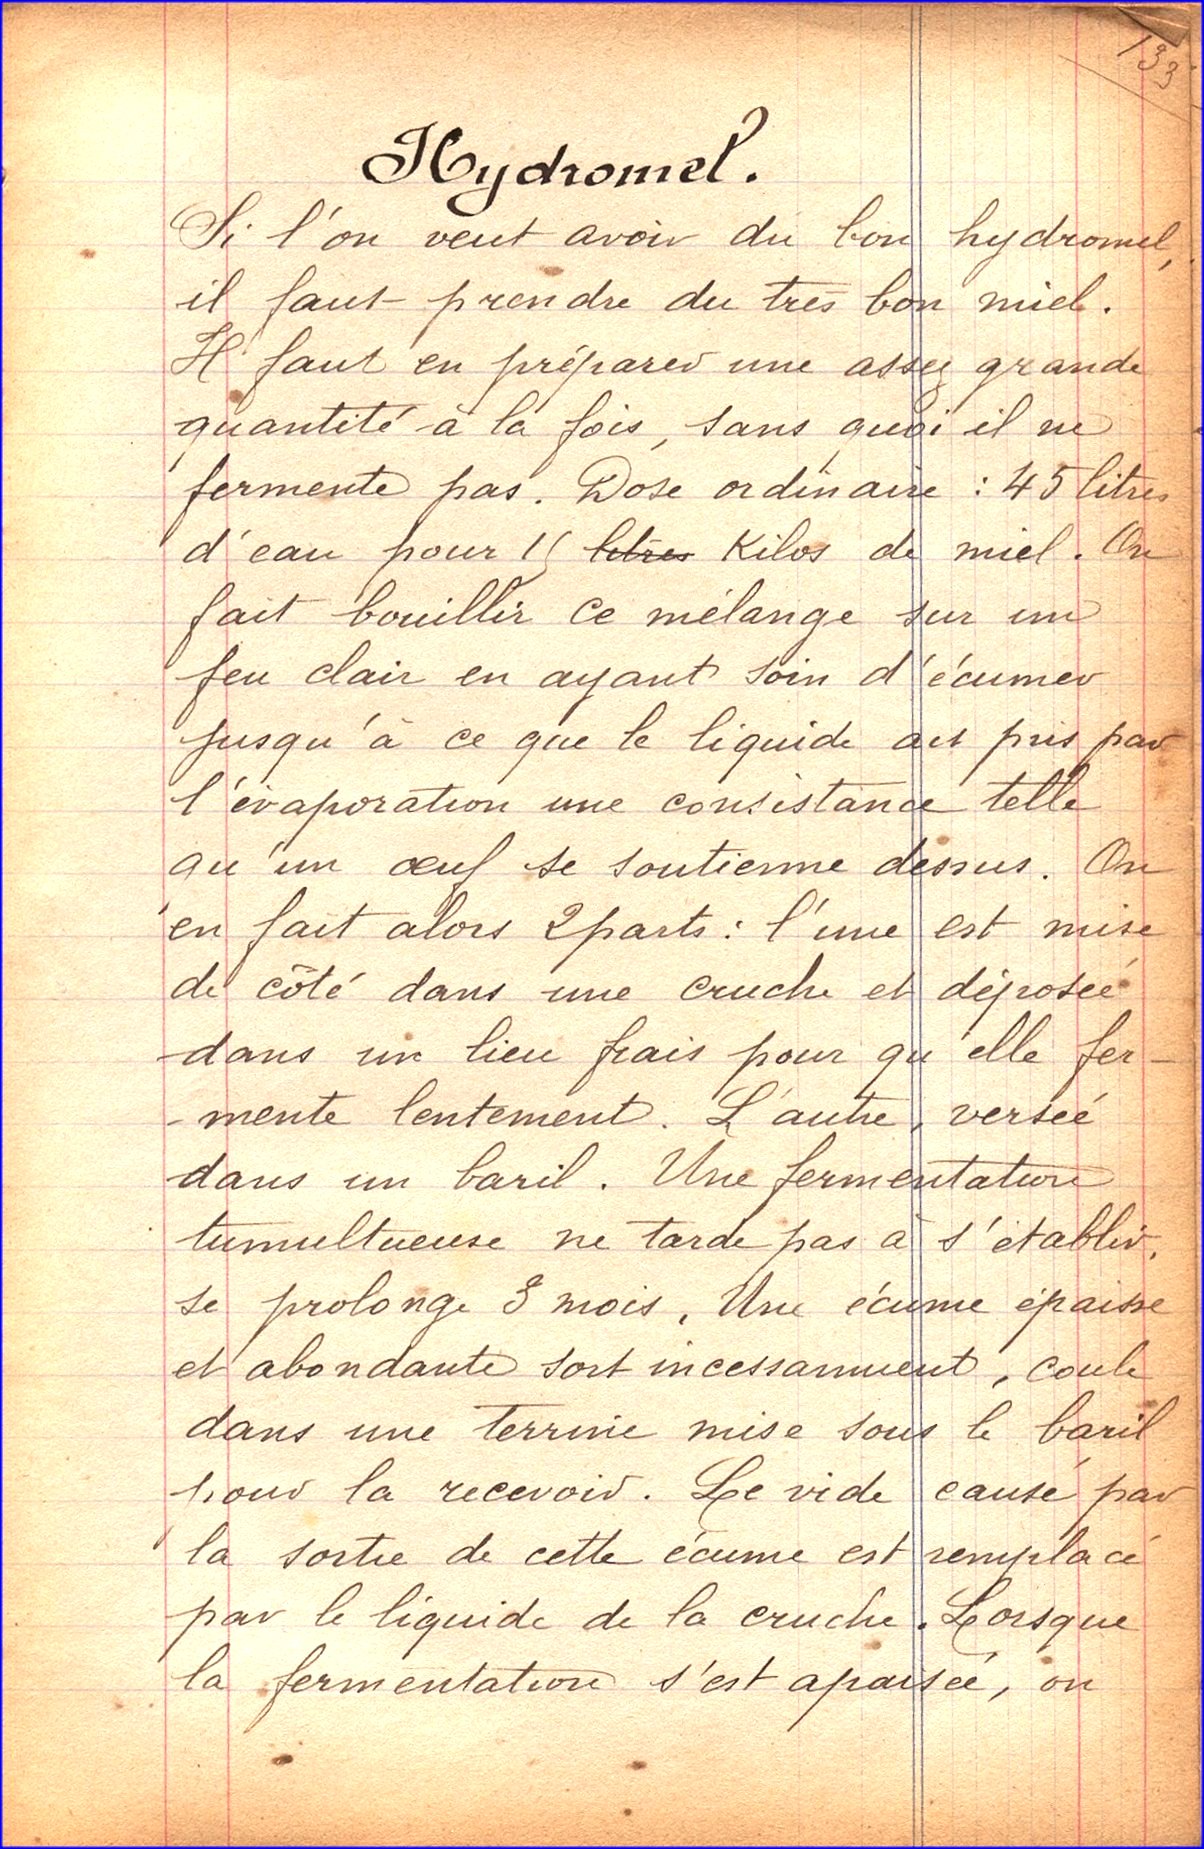 133
Hydromel.
Si l'on veut avoir du bon hydromel,
il faut prendre du très bon miel.
Il faut en préparer une assez grande
quantité à la fois, sans quoi il ne
fermente pas. Dose ordinaire : 45 litres
d'eau pour 15 litres Kilos de miel. On
fait bouillir ce mélange sur un
feu clair en ayant soin d'écumer
jusqu'à ce que le liquide ait pris par
l'évaporation une consistance telle
qu'un œuf se soutienne dessus. On
en fait alors 2 parts : l'une est mise
de côté dans une cruche et déposée
dans un lieu frais pour qu'elle fer-
-mente lentement. L'autre, versée
dans un baril. Une fermentation
tumultueuse ne tarde pas à s'établir,
se prolonge 3 mois. Une écume épaisse
et abondante sort incessamment, coule
dans une terrine mise sous le baril
pour la recevoir. Le vide causé par
la sortie de cette écume est remplacé
par le liquide de la cruche. Lorsque
la fermentation s'est apaisée, on